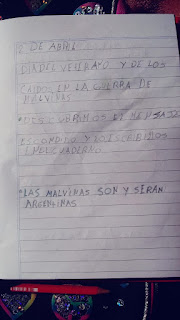 2 DE ABRIL
DIA DEL VETERANO Y DE LOS
CAIDOS EN LA GUERRA DE
MALVINAS
• DESCUBRIMOS EL MENSAJE
ESCONDIDO Y LO ESCRIBIMOS
EN EL CUADERNO
• LAS MALVINAS SON Y SERAN
ARGENTINAS